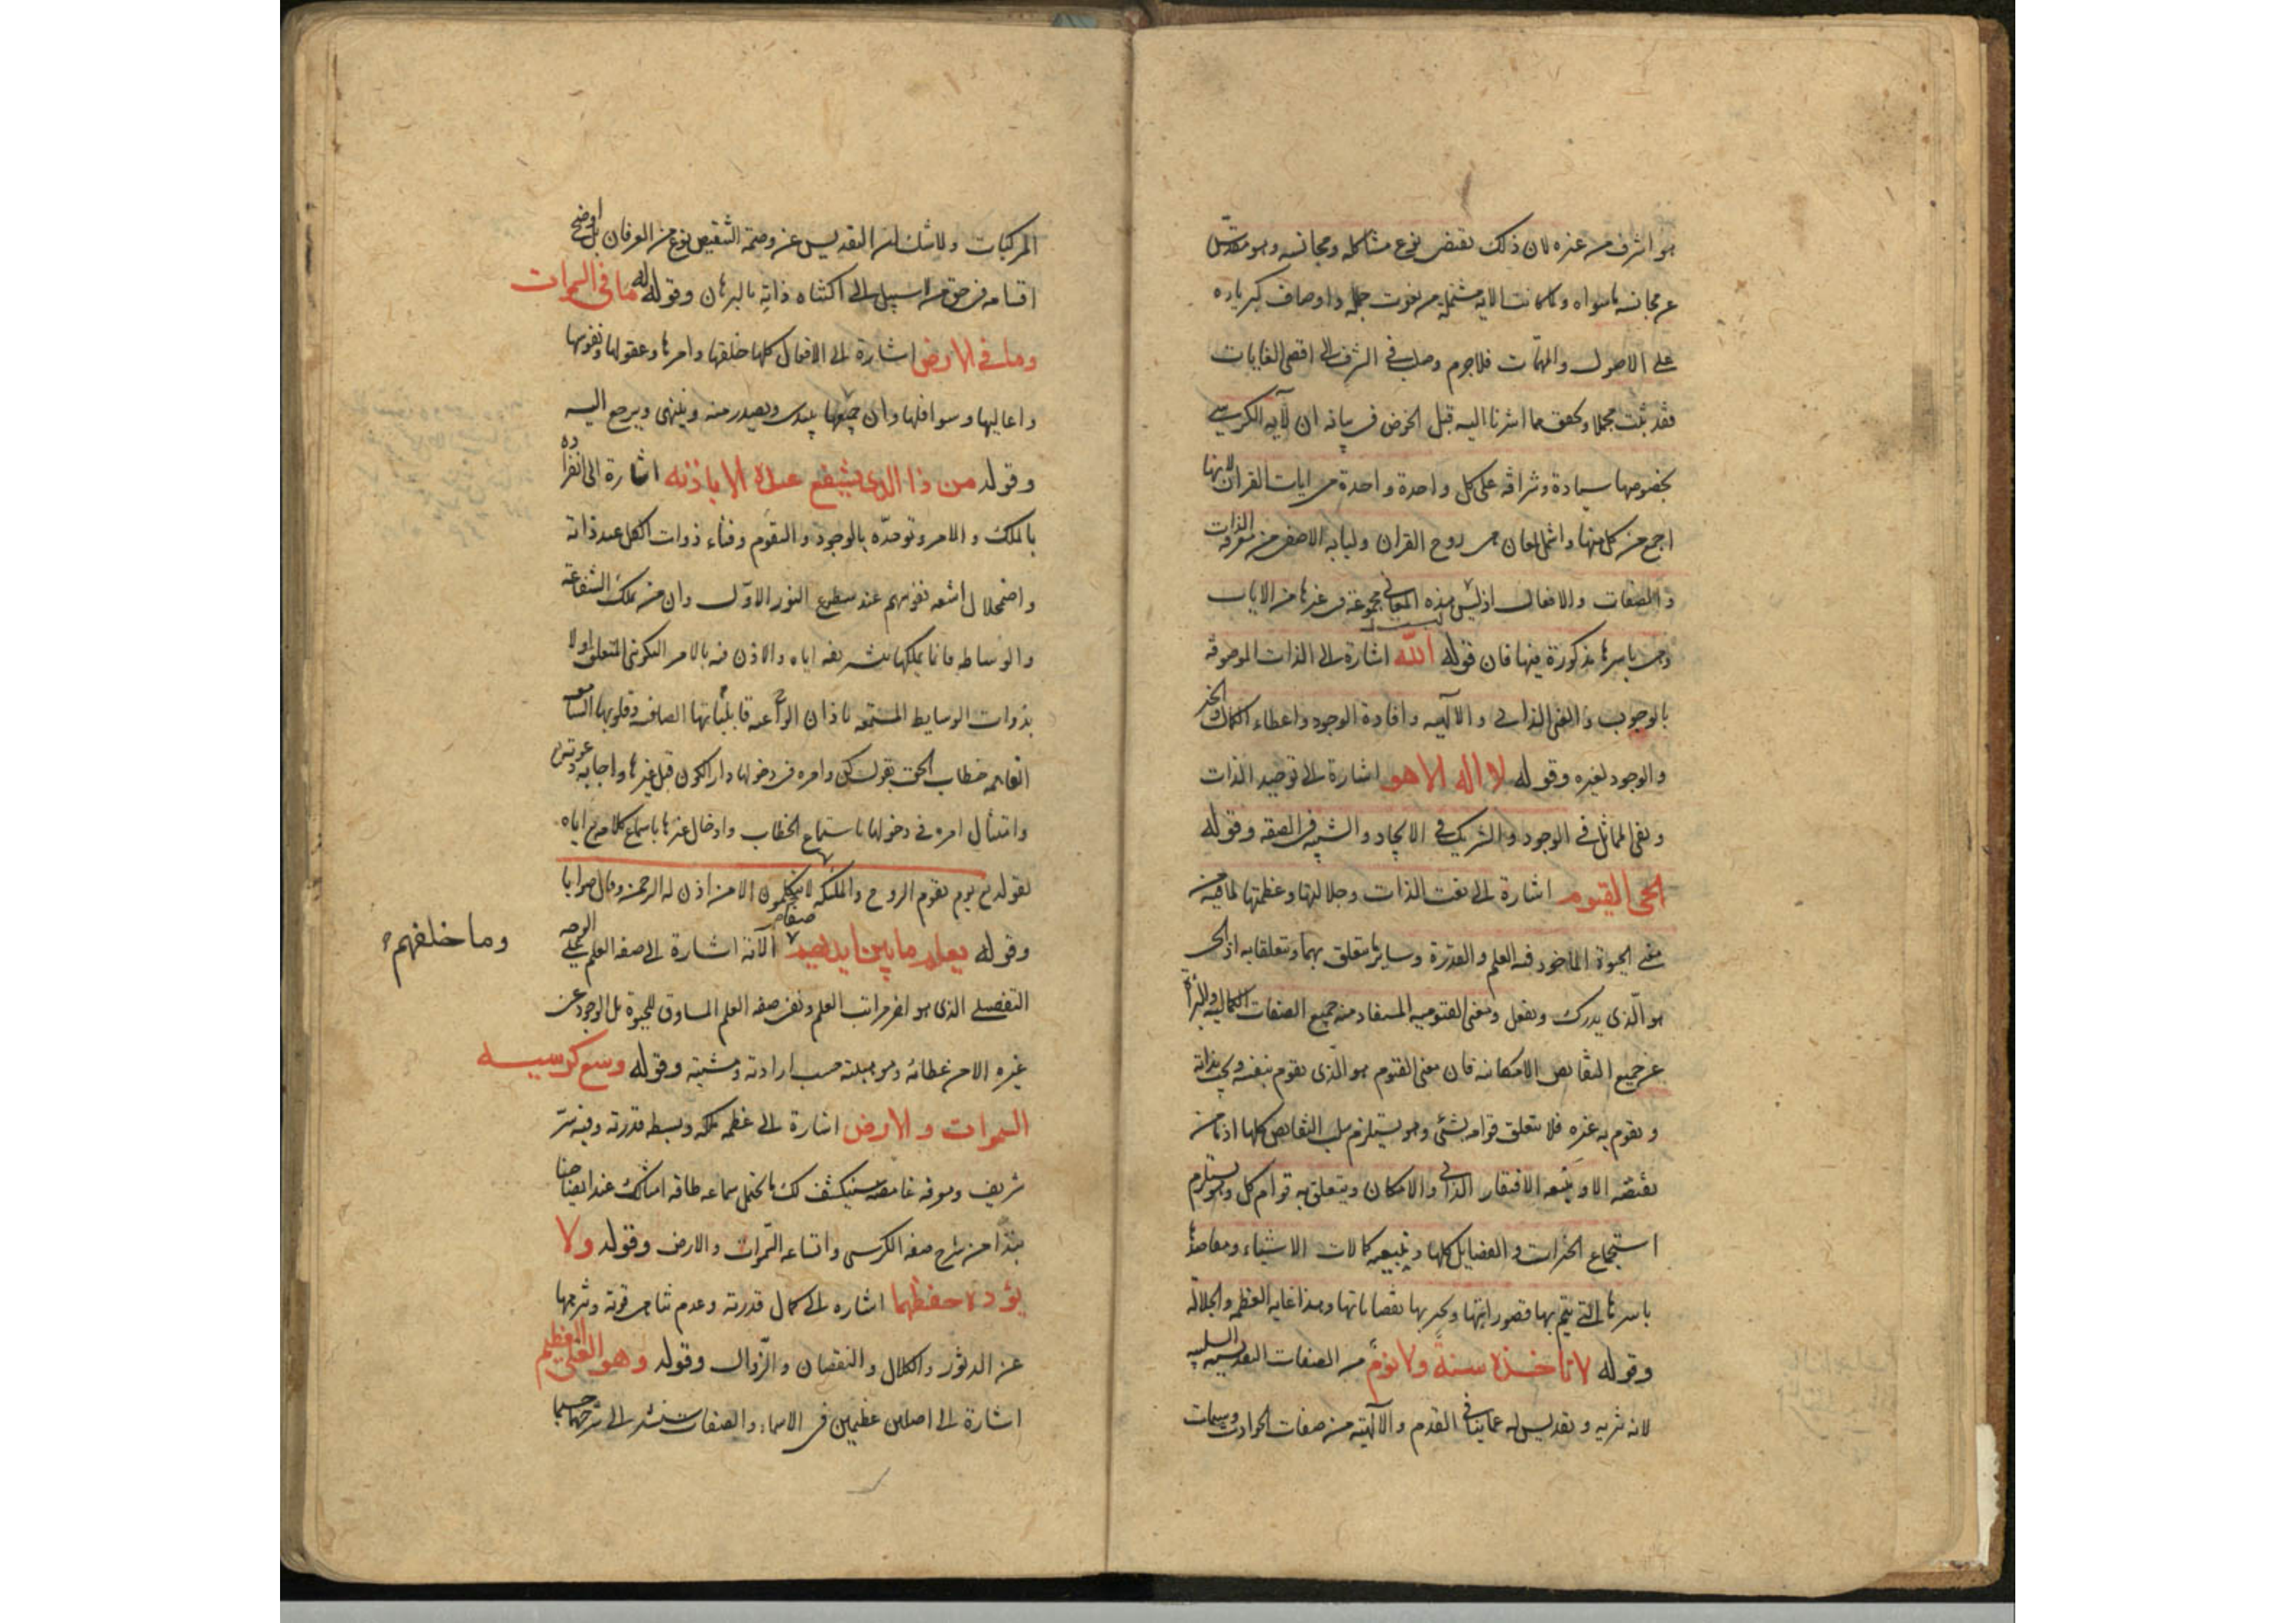 هو اشرف من غيره لان ذلك يقتضى نوع مشاكله ومجانسه وهو مقدس
عن مجانسه ماسواه ولما كانت الايه مشتمله من نعوت جماله واوصاف كبرياده
على الاصول والمهمات فلاجرم وصلت فى الشرف الى اقصى الغايات
فقد ثبت مجملا وتحقق مما اشرنا اليه قبل الخوض فى بيانه ان لآيه الكرسى
بخصوصها سيادة وشرافه على كل واحدة واحدة من ايات القران لانها
اجمع من كل منها واشمل لمعان هى روح القران ولبابه الاصفى من معرفه الذات
والصفات والافعال اذ ليس هذه المعانى مجموعة فى غيرها من الايات
وهى باسرها مذكورة فيها فان قوله الله اشارة الى الذات الموصوفه
بالوجوب والغنى الذاتى والآلهيه وافادة الوجود واعطاء الكمال والخير
والوجود لغيره وقوله لا اله الا هو اشارة الى توحيد الذات
ونفى المماثل فى الوجود والشريك فى الايجاد والشبه فى الصفه وقوله
الحى القيوم اشارة الى نعت الذات وجلالتها وعظمتها لما فيه من
معنى الحيوة الماخوذ فيه العلم والقدرة وساير ما يتعلق بهما ويتعلقا به اذ الحى
هو الذى يدرك ويفعل ومعنى القيوميه المستفاد منه جميع الصفات الكماليه والبرأة
عن جميع النقايص الامكانيه فان معنى القيوم هو الذى يقوم بنفسه ويجب بذاته
ويقوم به غيره فلا يتعلق قوامه بشئ وهو يستلزم سلب النقايص كلها اذ ما من
نقيصه الا و منبعه الافتقار الذاتى والامكان ويتعلق به قوام كل وهو يستلزم
استجماع الخيرات والفضايل كلها و كمالات الاشياء ومقاصدها
باسرها التى يتم بها قصوراتها ويجبر بها نقصاناتها وهذا غايه العظمه والجلاله
وقوله لا تاخذه سنة ولا نوم من الصفات التقديسيه السلبيه
لانه تنزيه وتقديس له عما ينافى القدم والآلهيه من صفات الحوادث وسمات
المركبات ولا شك ان التقديس عن وصمة التنقيص نوع من العرفان بل اوضح
اقسامه فى حق من لا سبيل الى اكتناه ذاته بالبرهان وقوله له ما فى السموات
وما فى الارض اشارة الى الافعال كلها خلقها وامرها وعقولها ونفوسها
واعاليها وسوافلها وان جميعها يبتدى ويصدر منه وينتهى ويرجع اليه
وقوله من ذا الذى يشفع عنده الا باذنه اشارة الى انفراده
بالملك والامر وتوحده بالوجود والتقوم وفناء ذوات الكل عند ذاته
واضمحلال اشعه نفوسهم عند سطوع النور الاول وان من يملك الشفاعة
والوساطه فانما يملكها بتشريفه اياه والاذن فيه بالامر التكوينى المتعلق اولا
بذوات الوسايط المستمعه باذان الواعيه قابلياتها الصافيه وقلوبها السامعه
الفاهمه خطاب الحق بقول كن وامره فى دخولها دار الكون قبل غيرها واجابه دعوته
وامتثال امره فى دخولها باستماع الخطاب وادخال غيرها باسماع كلامه تع اياه
لقوله تع يوم يقوم الروح والملئكه صفا لا يتكلمون الا من اذن له الرحمن وقال صوابا
وقوله يعلم ما بين ايديهم الآية اشارة الى صفه العلم على الوجه
وما خلفهم
التفصيلى الذى هو اخر مراتب العلم ونفى صفه العلم المساوق للحيوة بل الوجود عن
غيره الا من عطائه وموهبته حسب ارادته ومشيته وقوله وسع كرسيه
السموات والارض اشارة الى عظمه ملكه وبسط قدرته وفيه سر
شريف ومعرفه غامضه سينكشف لك ما يحتمل سماعه طاقه امثالك عند ايضاحنا
نبذا من شرح صفه الكرسى واتساعه السموات والارض وقوله ولا
يؤده حفظهما اشاره الى كمال قدرته وعدم تناهى قوته وتنزيهها
عن الدثور والكلال والنقصان والزوال وقوله وهو العلى العظيم
اشارة الى اصلين عظيمين فى الاسماء والصفات سنشير الى شرحهما حسبما